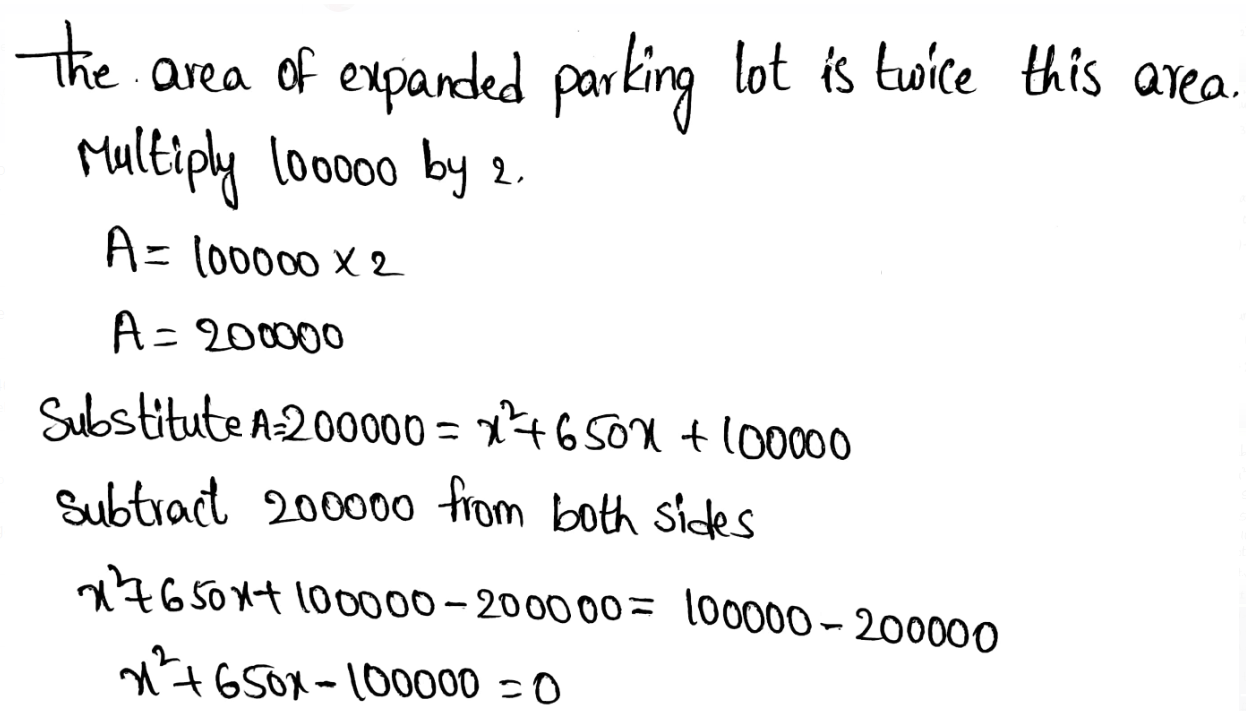 The area of expanded parking lot is twice this area.
Multiply 100000 by 2.
A = 100000 × 2
A = 200000
Substitute A=200000 = x²+650x + 100000
Subtract 200000 from both sides
x²+650x+100000-200000 = 100000-200000
x²+650x-100000 = 0